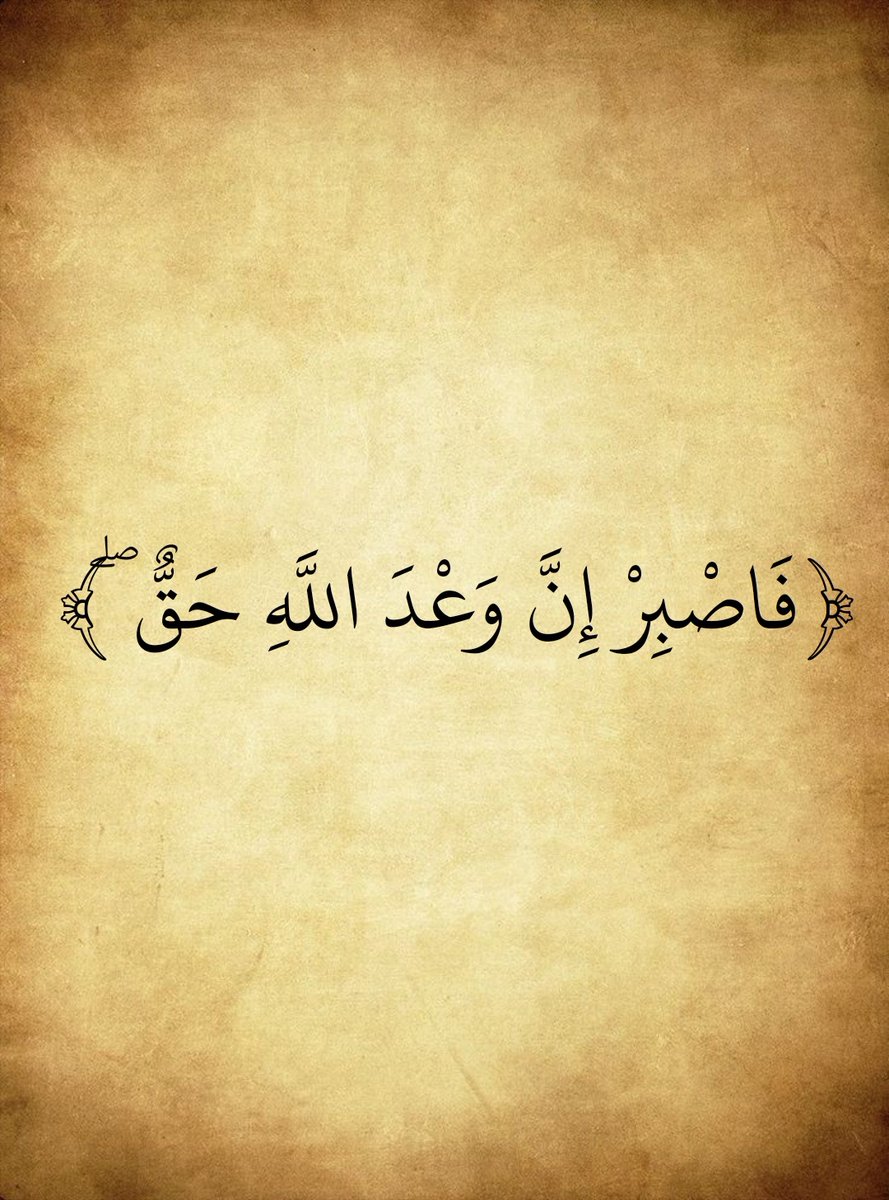 ﴿فَاصْبِرْ إِنَّ وَعْدَ اللَّهِ حَقٌّ ۖ﴾